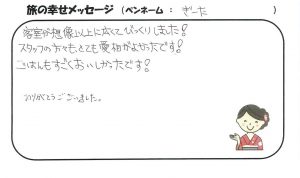 旅の幸せメッセージ (ペンネーム : ぎーた )
客室が想像以上に広くてびっくりしました!
スタッフの方々もとても愛想がよかったです!
ごはんもすごくおいしかったです!
ありがとうございました。